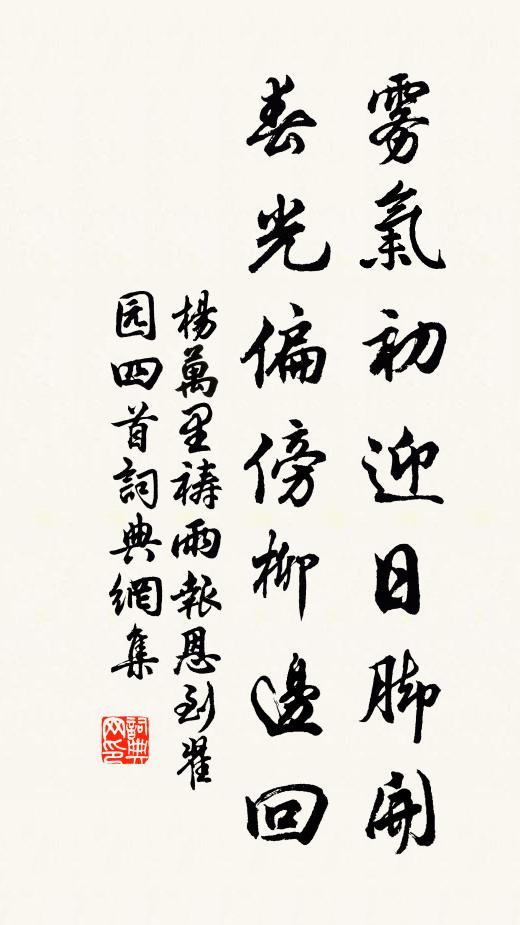 雾氣初迎日脚開
春光偏傍柳邊回
楊萬里禱雨報恩到翟
园四首詞典網集
詞典
网印